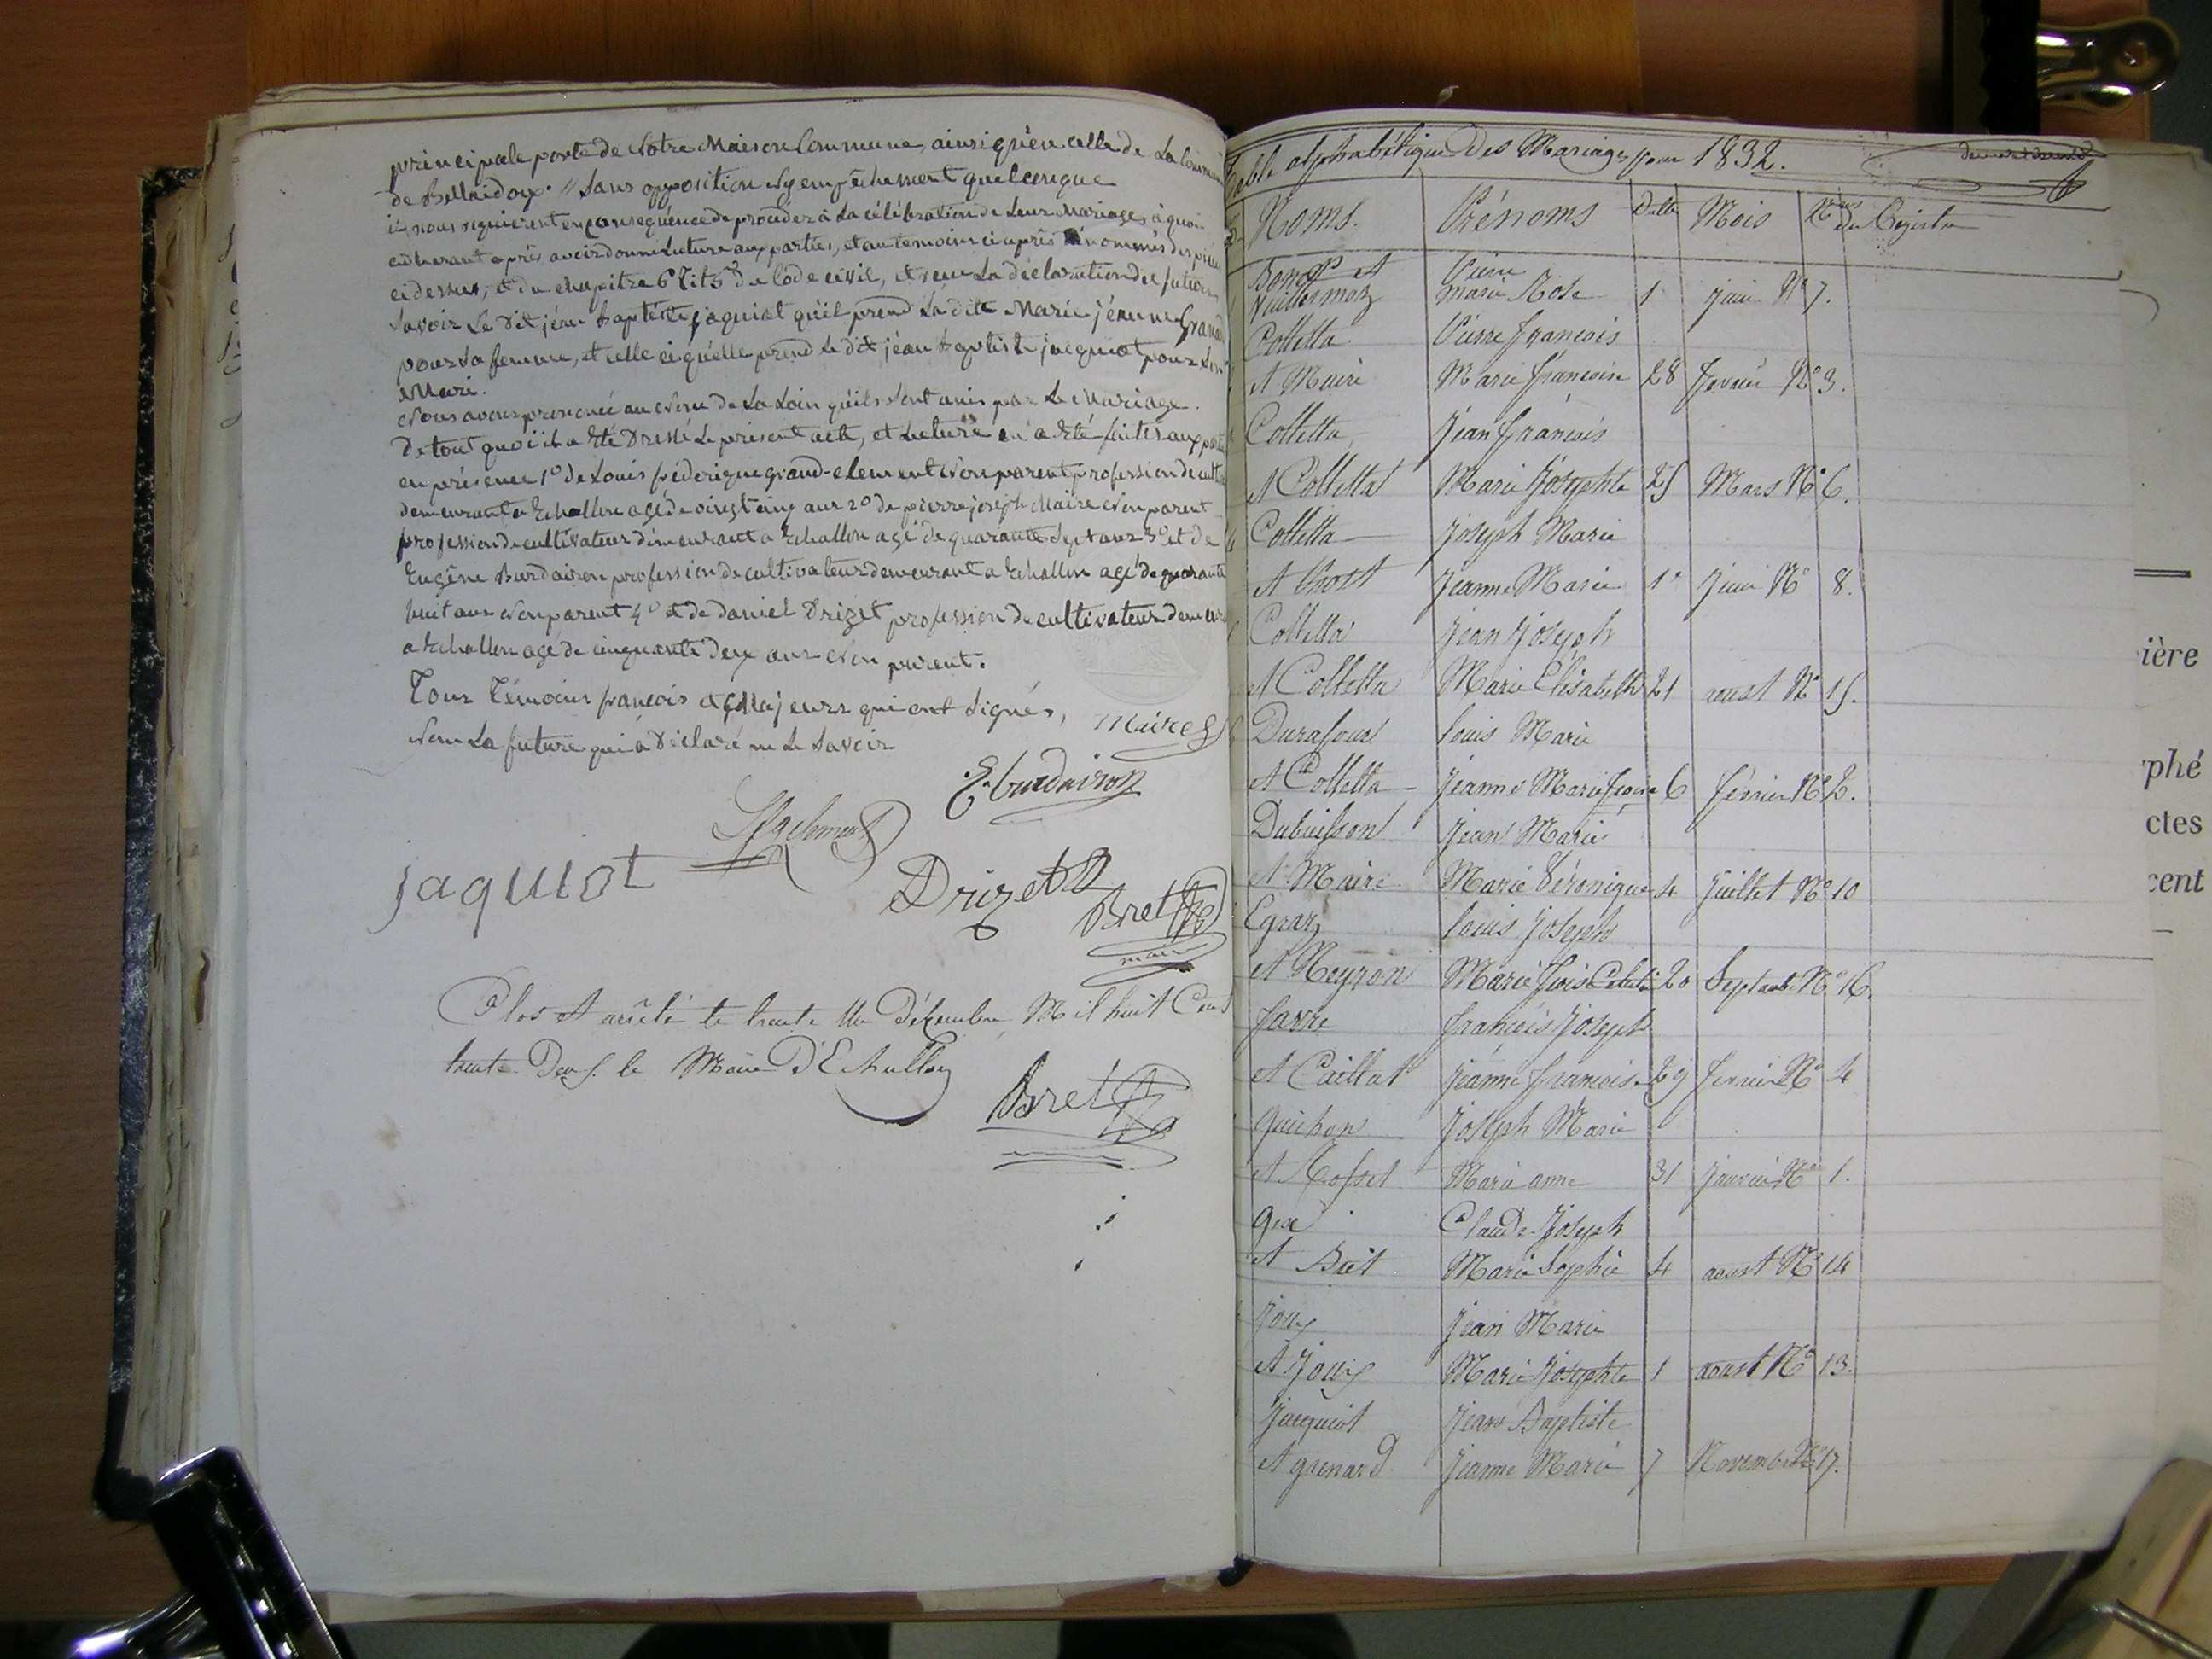 principale porte de Notre Maison Commune, ainsi qu'en celle de La
de Bellaidoux. // Sans opposition ny empêchement quelconque
il nous requierent en consequence de procéder à La célébration de Leur Mariage, à quoi
après avoir donné Lecture aux parties, et au temoins ci après dénommés des
ci dessus, et du chapitre 6 tit 5 du Code civil, et reçu La déclaration des futurs
Savoir Le dit jéan baptiste jaquiot qu'il prend La dite Marie jéanne
pour Sa femme, et celle ci qu'elle prend Le dit jéan baptiste jacquiot pour Son
Mari.
Nous avons prononcé au Nom de La Loin qu'ils Sont unis par Le Mariage.
De tout quoi il a Eté Dressé Le présent acte, et Lecture en a Eté faites aux
en présence 1º de Louis fréderique grand-clement Non parent profession de
demeurant a Echallon agé de vingt cinq ans 2º de pierre joseph Maire Non parent
profession de cultivateur démeurant a Echallon agé de quarante Sept ans 3º et de
Eugêne Burdairon profession de cultivateur demeurant a Echallon agé de quarante
huit ans Non parent 4º et de daniel Drizet profession de cultivateur
a Echallon age de cinquante deux ans Non parent.
Tous Témoins francois et Majeurs qui ont Signés,
Non La future qui a Déclaré ne Le Savoir
Maire
E. burdairon
jaquiot
Drizet
Bret
maire
Clos et arrêté le trente Un Décembre Mil huit Cent
trente Deux. le Maire D'Echallon
Bret
Table alphabétique Des Mariages pour 1832.
Noms. Prénoms Datte Mois Nos du Régistre
et Pierre
Vuillermoz Marie Rose 1 juin No 7.
Colletta Pierre françois
et Maire Marie françoise 28 fevrier No 3.
Colletta Jéan françois
et Colletta Marie Josephte 25 Mars No 6.
Colletta joseph Marie
et Prost Jeanne Marie 1er Juin No 8.
Colletta Jéan Joseph
et Colletta Marie Elisabeth 21 aoust No 15.
Durafour louis Marie
et Colletta Jéanne Marie 6 février No 2.
Dubuisson Jean Marie
et Maire Marie Véronique 4 Juillet No 10
Egraz louis Joseph
et Neyron Marie 20 Septembre No 16.
favre françois Joseph
et Caillat jéanne françoise 29 fevrier No 4
guichon Joseph Marie
et Marie anne 31 Janvier No 1.
gex Claude Joseph
et Bret Marie Sophie 4 aoust No 14
Jouy Jéan Marie
et Jouy Marie Josephte 1 aoust No 13.
Jacquiot Jean Baptiste
et grenard Jéanne Marie 7 Novembre No 17.
ière
phé
ctes
cent